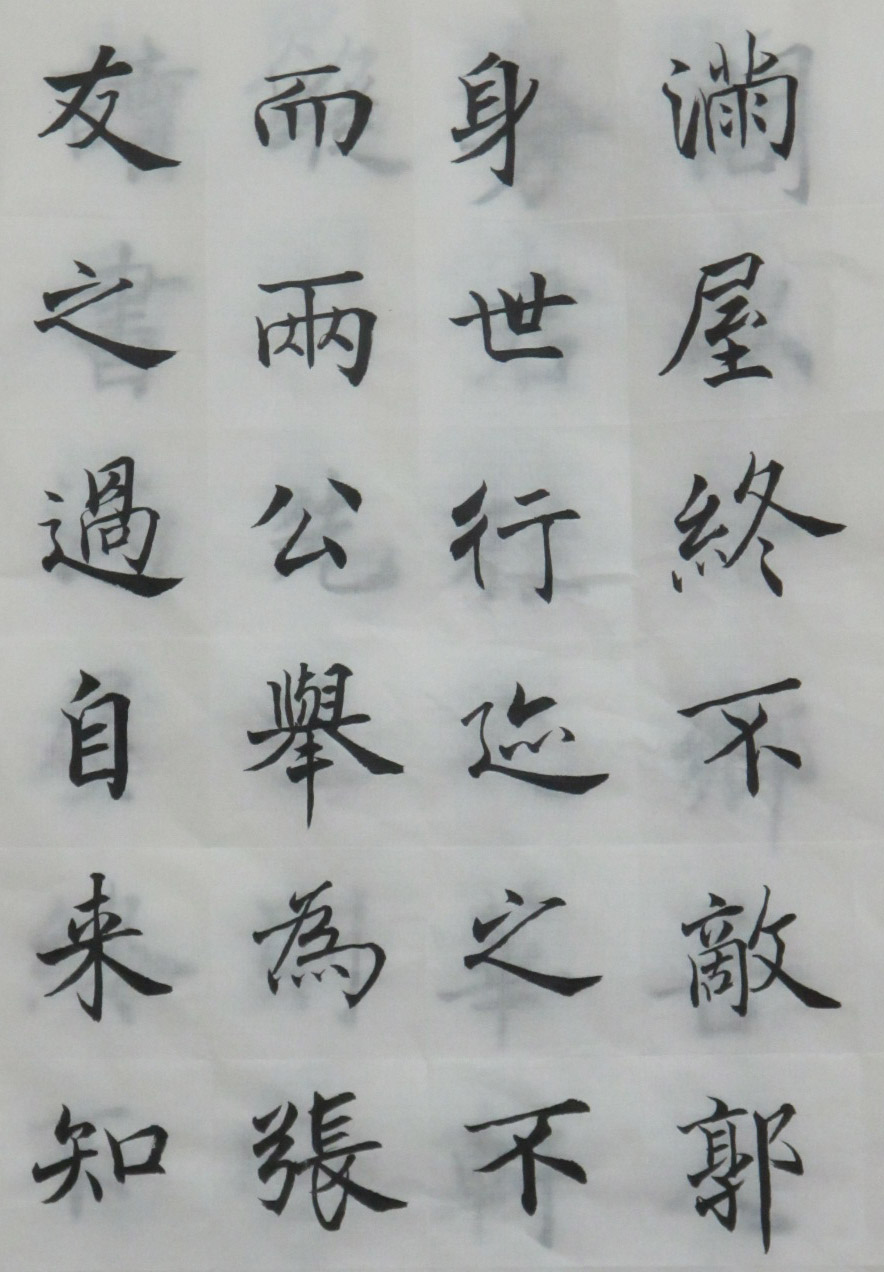 滿屋終不敵郭
身世行迹之不
而兩公舉為張
友之過自来知